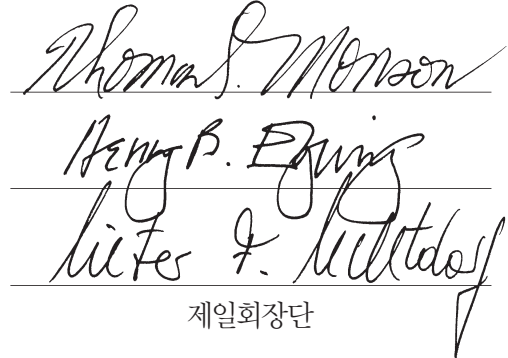 Thomas S. Monson
Henry B. Eyring
Dieter F. Uchtdorf
제일회장단